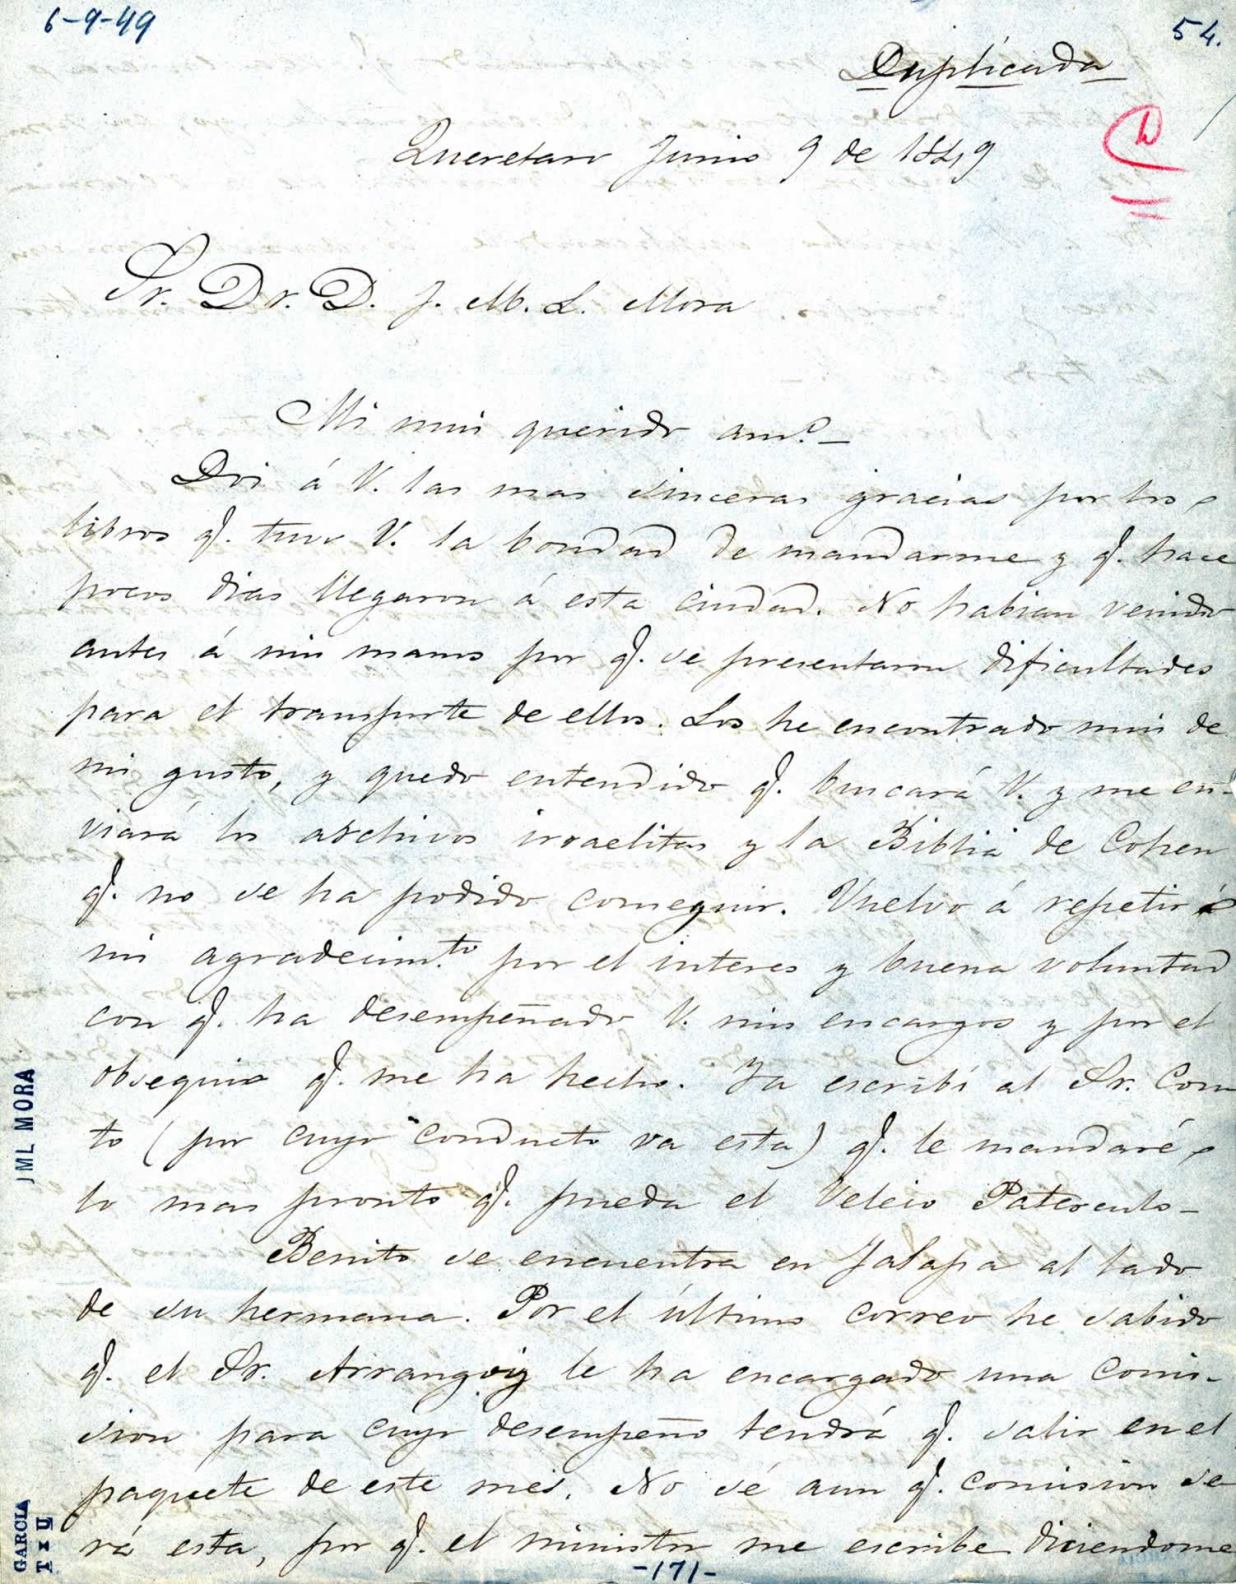 6-9-49
54.
Duplicada
Queretaro Junio 9 de 1849
Sr. Dr. D. J. M. L. Mora
Mi mui querido am.º
Doi á V. las mas sinceras gracias por los
libros q. tuvo V. la bondad de mandarme y q. hace
pocos dias llegaron á esta ciudad. No habian venido
antes á mis manos por q. se presentaron dificultades
para el transporte de ellos. Los he encontrado mui de
mi gusto, y quedo entendido q. buscará V. y me en-
viará los archivos israelitas y la Biblia de Cohen
q. no se ha podido conseguir. Vuelvo á repetir
mi agradecim.to por el interes y buena voluntad
con q. ha desempeñado V. mis encargos y por el
obsequio q. me ha hecho. Ya escribí al Sr. Cou-
to (por cuyo conducto va esta) q. le mandaré
lo mas pronto q. pueda el Veleio Paterculo-
Benito se encuentra en Jalapa al lado
de su hermana. Por el último correo he sabido
q. el Sr. Arrangoiz le ha encargado una comi-
sion para cuyo desempeño tendrá q. salir en el
paquete de este mes. No sé aun q. comision se
rá esta, por q. el ministro me escribe diciendome
-171-
JML MORA
GARCIA
TxU